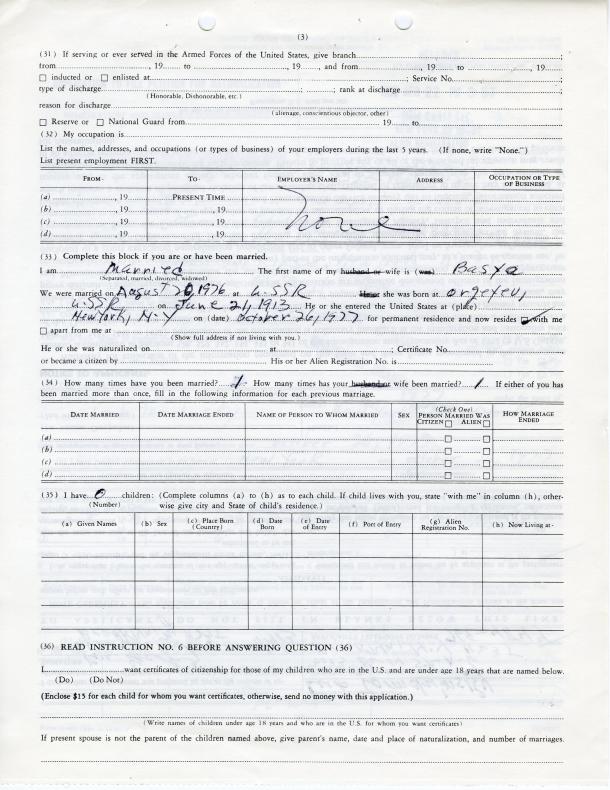 (3)
(31) If serving or ever served in the Armed Forces of the United States, give branch
from, 19 to, 19, and from, 19 to, 19
☐ inducted or ☐ enlisted at; Service No.;
type of discharge; ; rank at discharge
(Honorable, Dishonorable, etc.)
reason for discharge
(alienage, conscientious objector, other)
☐ Reserve or ☐ National Guard from 19 to
(32) My occupation is
List the names, addresses, and occupations (or types of business) of your employers during the last 5 years. (If none, write "None.")
List present employment FIRST.
FROM- TO- EMPLOYER'S NAME ADDRESS OCCUPATION OR TYPE OF BUSINESS
(a) , 19 PRESENT TIME
(b) , 19 , 19
(c) , 19 , 19
(d) , 19 , 19
None
(33) Complete this block if you are or have been married.
I am Married The first name of my husband or wife is (was) Basya
(Separated, married, divorced, widowed)
We were married on August 20, 1976 at U-SSR He or she was born at orgeyev,
U-SSR on June 21, 1913 He or she entered the United States at (place)
New York, N-Y on (date) October 26, 1977 for permanent residence and now resides ☑ with me
☐ apart from me at
(Show full address if not living with you.)
He or she was naturalized on at; Certificate No.
or became a citizen by His or her Alien Registration No. is
(34) How many times have you been married? 1 How many times has your husband or wife been married? 1 If either of you has
been married more than once, fill in the following information for each previous marriage.
DATE MARRIED DATE MARRIAGE ENDED NAME OF PERSON TO WHOM MARRIED SEX (Check One) PERSON MARRIED WAS CITIZEN ☐ ALIEN ☐ HOW MARRIAGE ENDED
(a) ☐ ☐
(b) ☐ ☐
(c) ☐ ☐
(d) ☐ ☐
(35) I have 0 children: (Complete columns (a) to (h) as to each child. If child lives with you, state "with me" in column (h), other-
(Number) wise give city and State of child's residence.)
(a) Given Names (b) Sex (c) Place Born (Country) (d) Date Born (e) Date of Entry (f) Port of Entry (g) Alien Registration No. (h) Now Living at-
(36) READ INSTRUCTION NO. 6 BEFORE ANSWERING QUESTION (36)
I want certificates of citizenship for those of my children who are in the U.S. and are under age 18 years that are named below.
(Do) (Do Not)
(Enclose $15 for each child for whom you want certificates, otherwise, send no money with this application.)
(Write names of children under age 18 years and who are in the U.S. for whom you want certificates)
If present spouse is not the parent of the children named above, give parent's name, date and place of naturalization, and number of marriages.